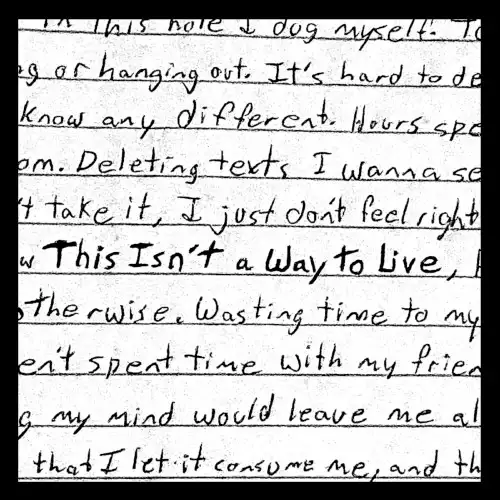 in This hole I dug myself. To
g or hanging out. It's hard to de
know any different. Hours spe
om. Deleting texts I wanna se
't take it, I just don't feel right
w This Isn't a Way To Live,
otherwise. Wasting time to my
en't spent time with my frien
g my mind would leave me al
that I let it consume me, and th